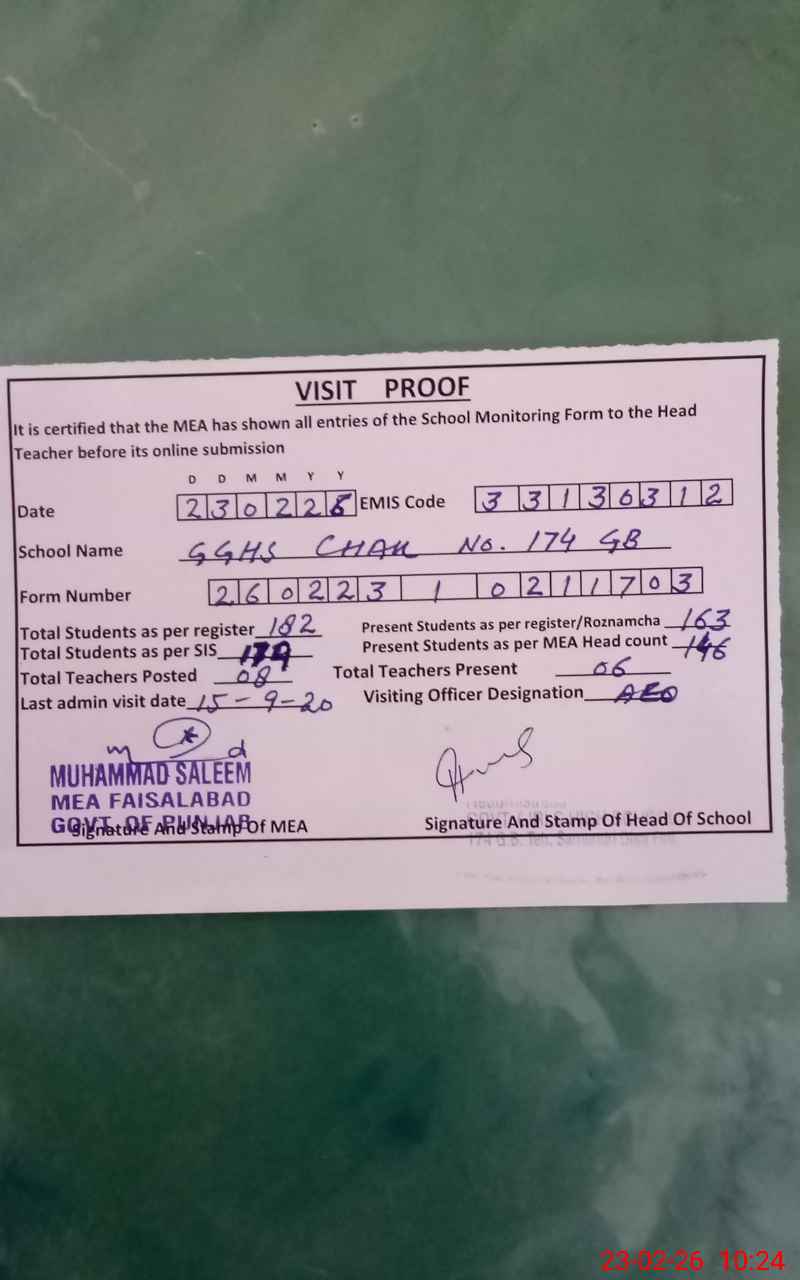 VISIT PROOF
It is certified that the MEA has shown all entries of the School Monitoring Form to the Head
Teacher before its online submission
D D M M Y Y
Date 2 3 0 2 2 6 EMIS Code 3 3 1 3 0 3 1 2
School Name GGHS CHAK No. 174 GB
Form Number 2 6 0 2 2 3 1 0 2 1 1 7 0 3
Total Students as per register 182 Present Students as per register/Roznamcha 163
Total Students as per SIS 179 Present Students as per MEA Head count 146
Total Teachers Posted 08 Total Teachers Present 06
Last admin visit date 15-9-20 Visiting Officer Designation AEO
MUHAMMAD SALEEM
MEA FAISALABAD
GOVT. OF PUNJAB
Signature And Stamp Of MEA Signature And Stamp Of Head Of School
23-02-26 10:24